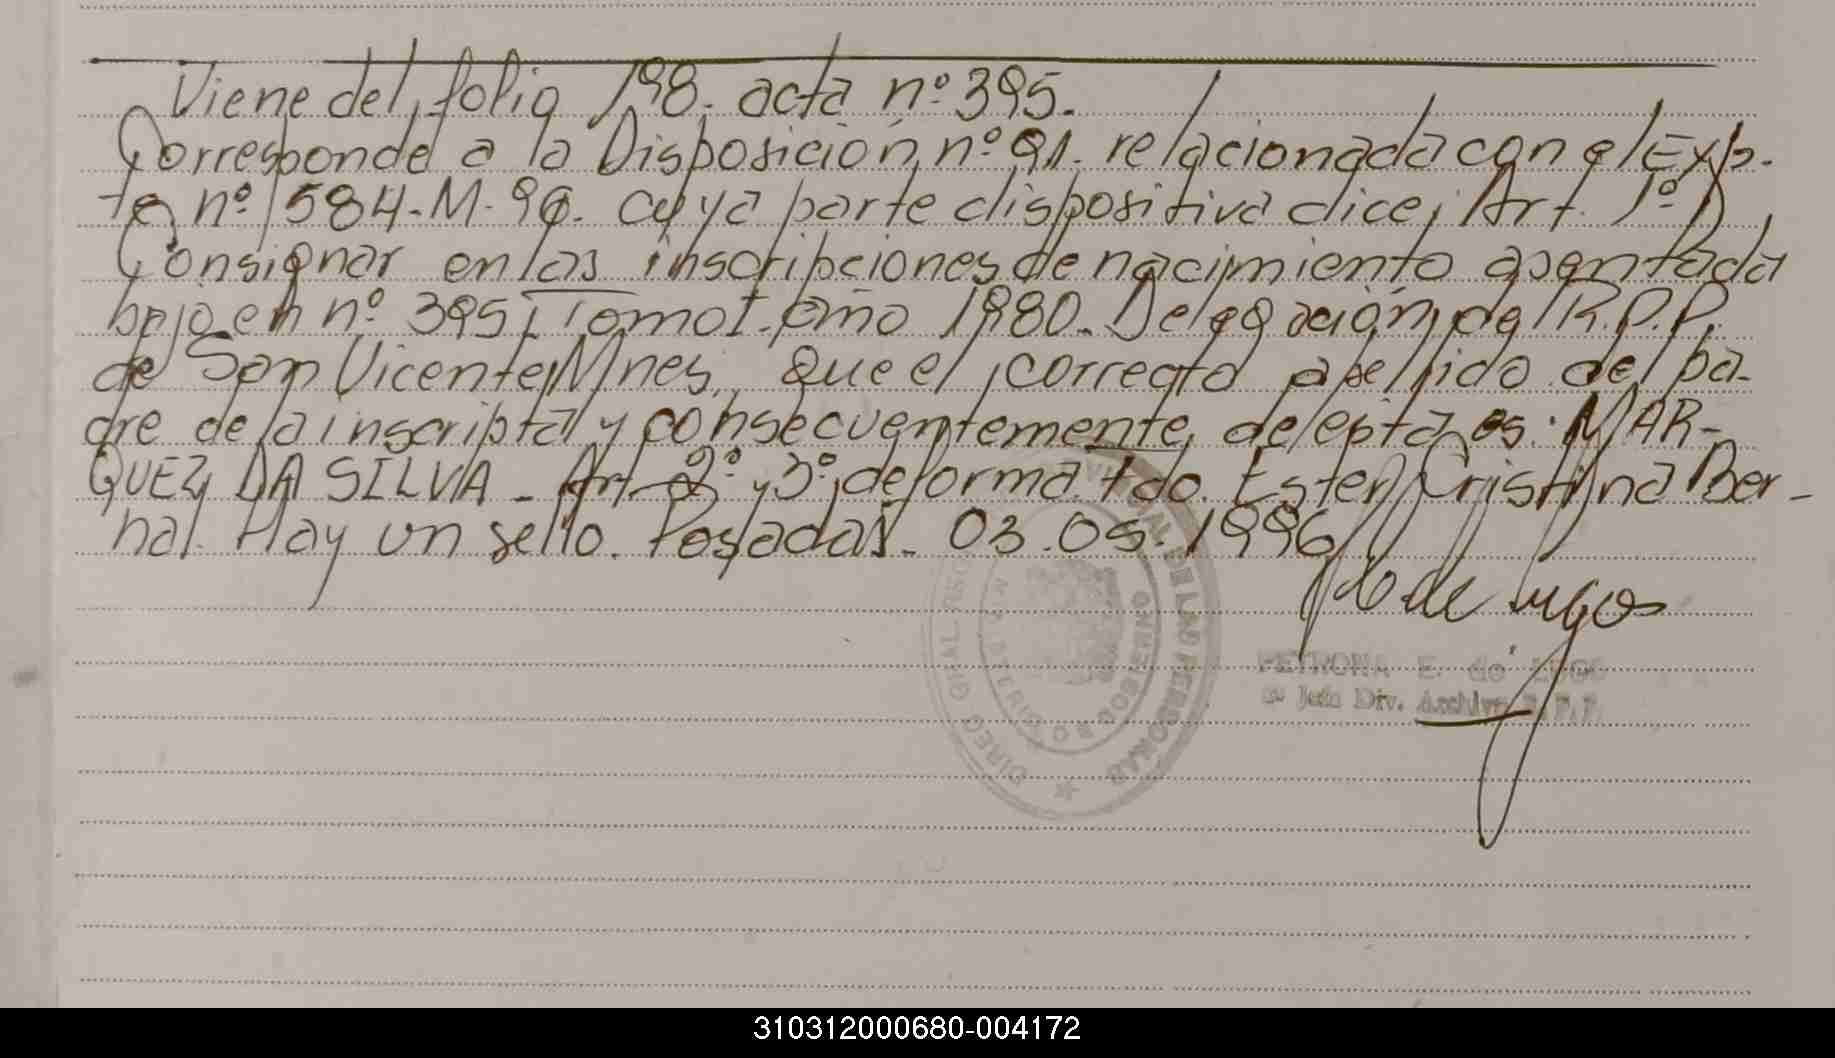 Viene del folio 198. acta nº 395.
Corresponde a la Disposición nº 91. relacionada con el Exp-
te nº 1584-M-96. cuya parte dispositiva dice, Art. 1º)
Consignar en las inscripciones de nacimiento asentada
bajo en nº 395, Tomo I. año 1980. Delegación del R.P.P.
de San Vicente, Mnes, que el correcto apellido del pa-
dre de la inscripta y consecuentemente de esta es: MAR-
QUEZ DA SILVA - Art 2º y 3º, de forma. Fdo. Ester Cristina Ber-
nal. Hay un sello. Posadas. 03.05.1996
PETRONA E. de LUGO
Jefa Div. Archivo R.P.P.
310312000680-004172